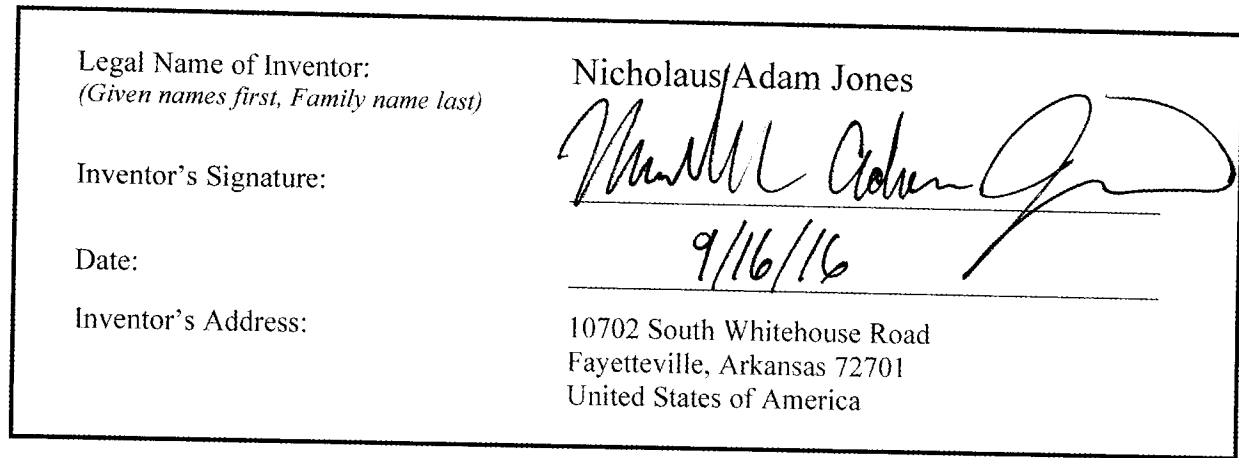 Legal Name of Inventor: Nicholaus Adam Jones
(Given names first, Family name last)
Inventor's Signature: Adam
Date: 9/16/16
Inventor's Address: 10702 South Whitehouse Road
Fayetteville, Arkansas 72701
United States of America